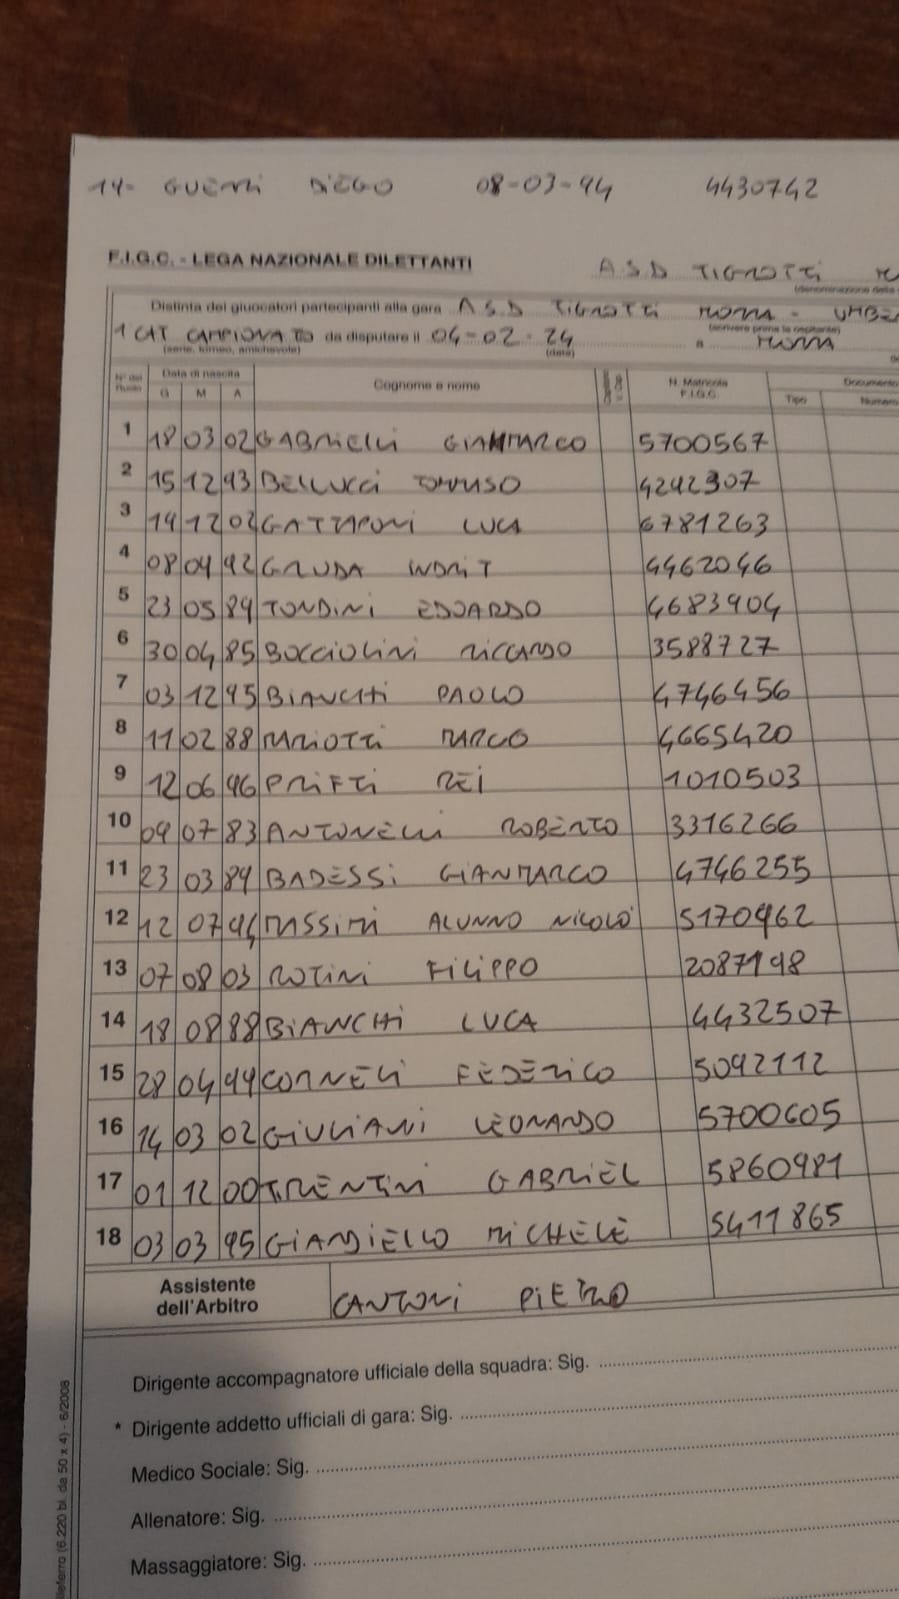 14- GUERRI DIEGO 08-03-94 4430742
F.I.G.C. - LEGA NAZIONALE DILETTANTI A.S.D TIGROTTI
(denominazione della
Distinta dei giuocatori partecipanti alla gara A.S.D TIGROTTI MORRA - UMBE
1 CAT CAMPIONATO da disputare il 04-02-24 a MORRA
(serie, torneo, amichevole) (data) (scrivere prima la ospitante)
N° del Ruolo Data di nascita Cognome e nome N. Matricola F.I.G.C. Documento
G M A Tipo Numero
1 18 03 02 GABRIELLI GIANMARCO 5700567
2 15 12 93 BELLUCCI TOMMASO 4242307
3 14 12 02 GATTAPONI LUCA 6781263
4 08 04 92 GRUDA INDRIT 4462046
5 23 05 89 TONDINI EDOARDO 4683904
6 30 04 85 BOCCIOLINI RICCARDO 3588727
7 03 12 95 BIANCHI PAOLO 4746456
8 11 02 88 MARIOTTI MARCO 4665420
9 12 06 96 PRIFTI REI 1010503
10 09 07 83 ANTONELLI ROBERTO 3316266
11 23 03 89 BADESSI GIANMARCO 4746255
12 12 07 94 MASSIMI ALUNNO NICOLO' 5170962
13 07 08 03 ROTINI FILIPPO 2087198
14 18 08 88 BIANCHI LUCA 4432507
15 28 04 99 CORNELI FEDERICO 5092112
16 14 03 02 GIULIANI LEONARDO 5700605
17 01 12 00 TRENTINI GABRIEL 5860981
18 03 03 95 GIANDIELLO MICHELE 5411865
Assistente dell'Arbitro CANTONI PIETRO
Dirigente accompagnatore ufficiale della squadra: Sig.
* Dirigente addetto ufficiali di gara: Sig.
Medico Sociale: Sig.
Allenatore: Sig.
Massaggiatore: Sig.
(6.220 bl. da 50 x 4) - 6/2008